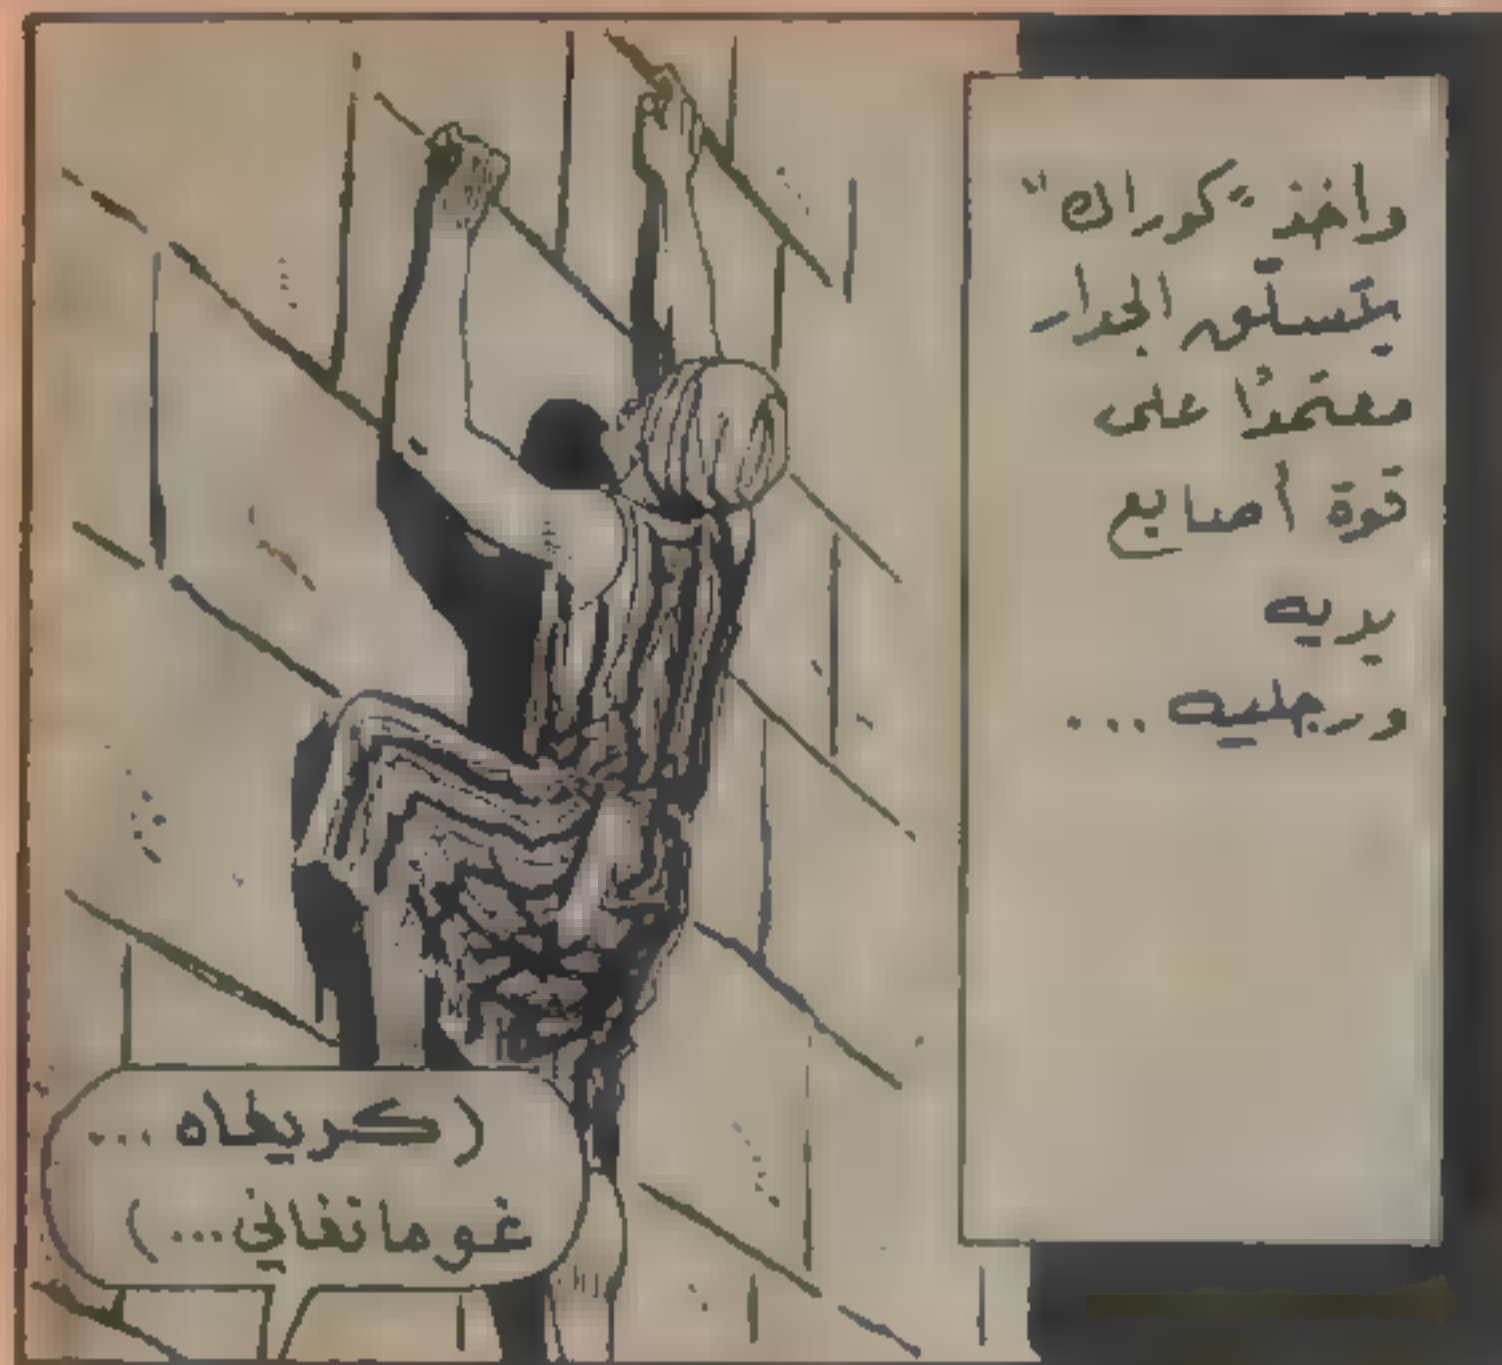 واخذ "كوراك"
يتسلق الجدار
معتمدًا على
قوة أصابع
يديه
ورجليه ...
(كريغاه ...
غومانغاني ...)